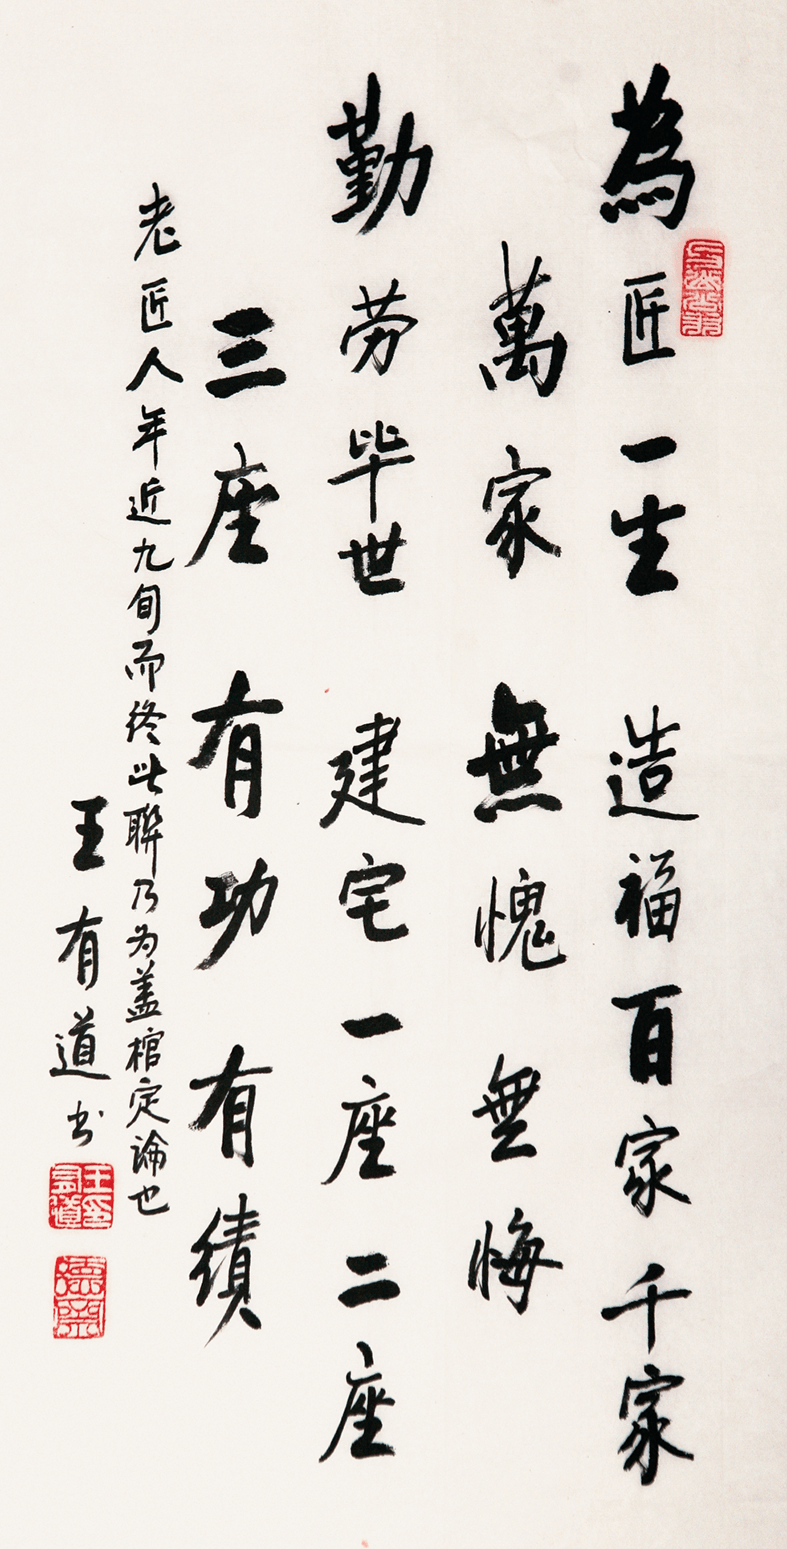 為匠一生 造福百家千家
萬家 無愧 無悔
勤劳毕世 建宅一座二座
三座 有功 有績
老匠人年近九旬而终此聯乃为盖棺定論也
王有道书
王有道印